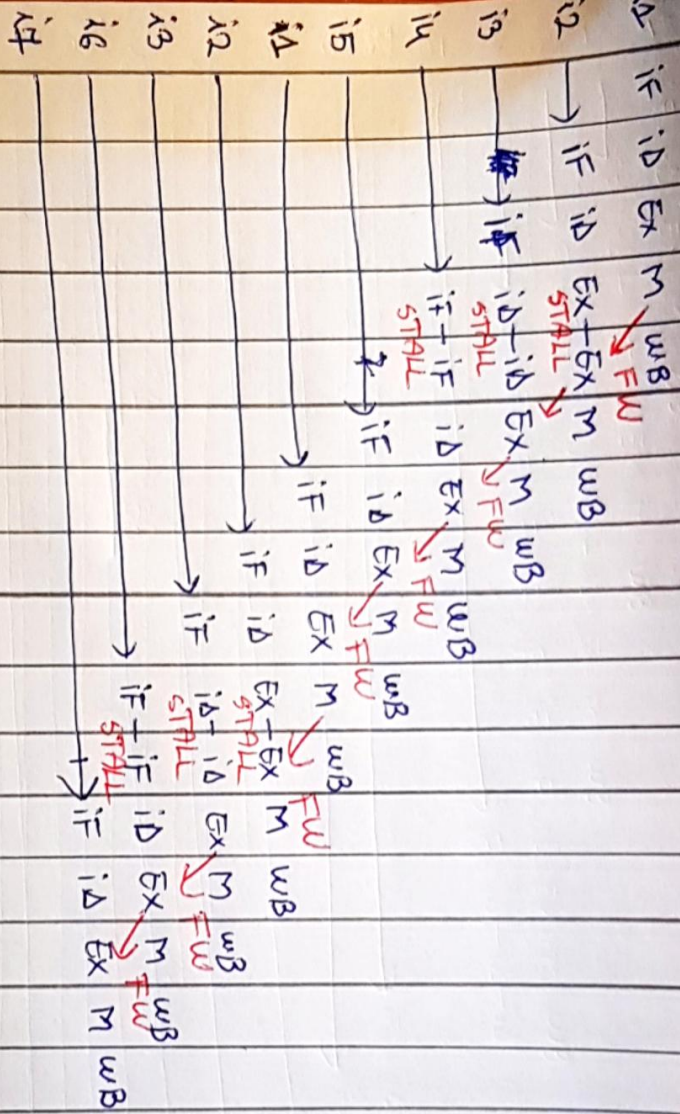 i1 iF iD Ex M WB
FW
i2 iF iD Ex - Ex M WB
STALL
i3 iF iD - iD Ex M WB
STALL FW
i4 iF - iF iD Ex M WB
STALL FW
i5 iF iD Ex M WB
FW
i1 iF iD Ex M WB
FW
i2 iF iD Ex - Ex M WB
STALL
i3 iF iD - iD Ex M WB
STALL FW
i6 iF - iF iD Ex M WB
STALL FW
i7 iF iD Ex M WB